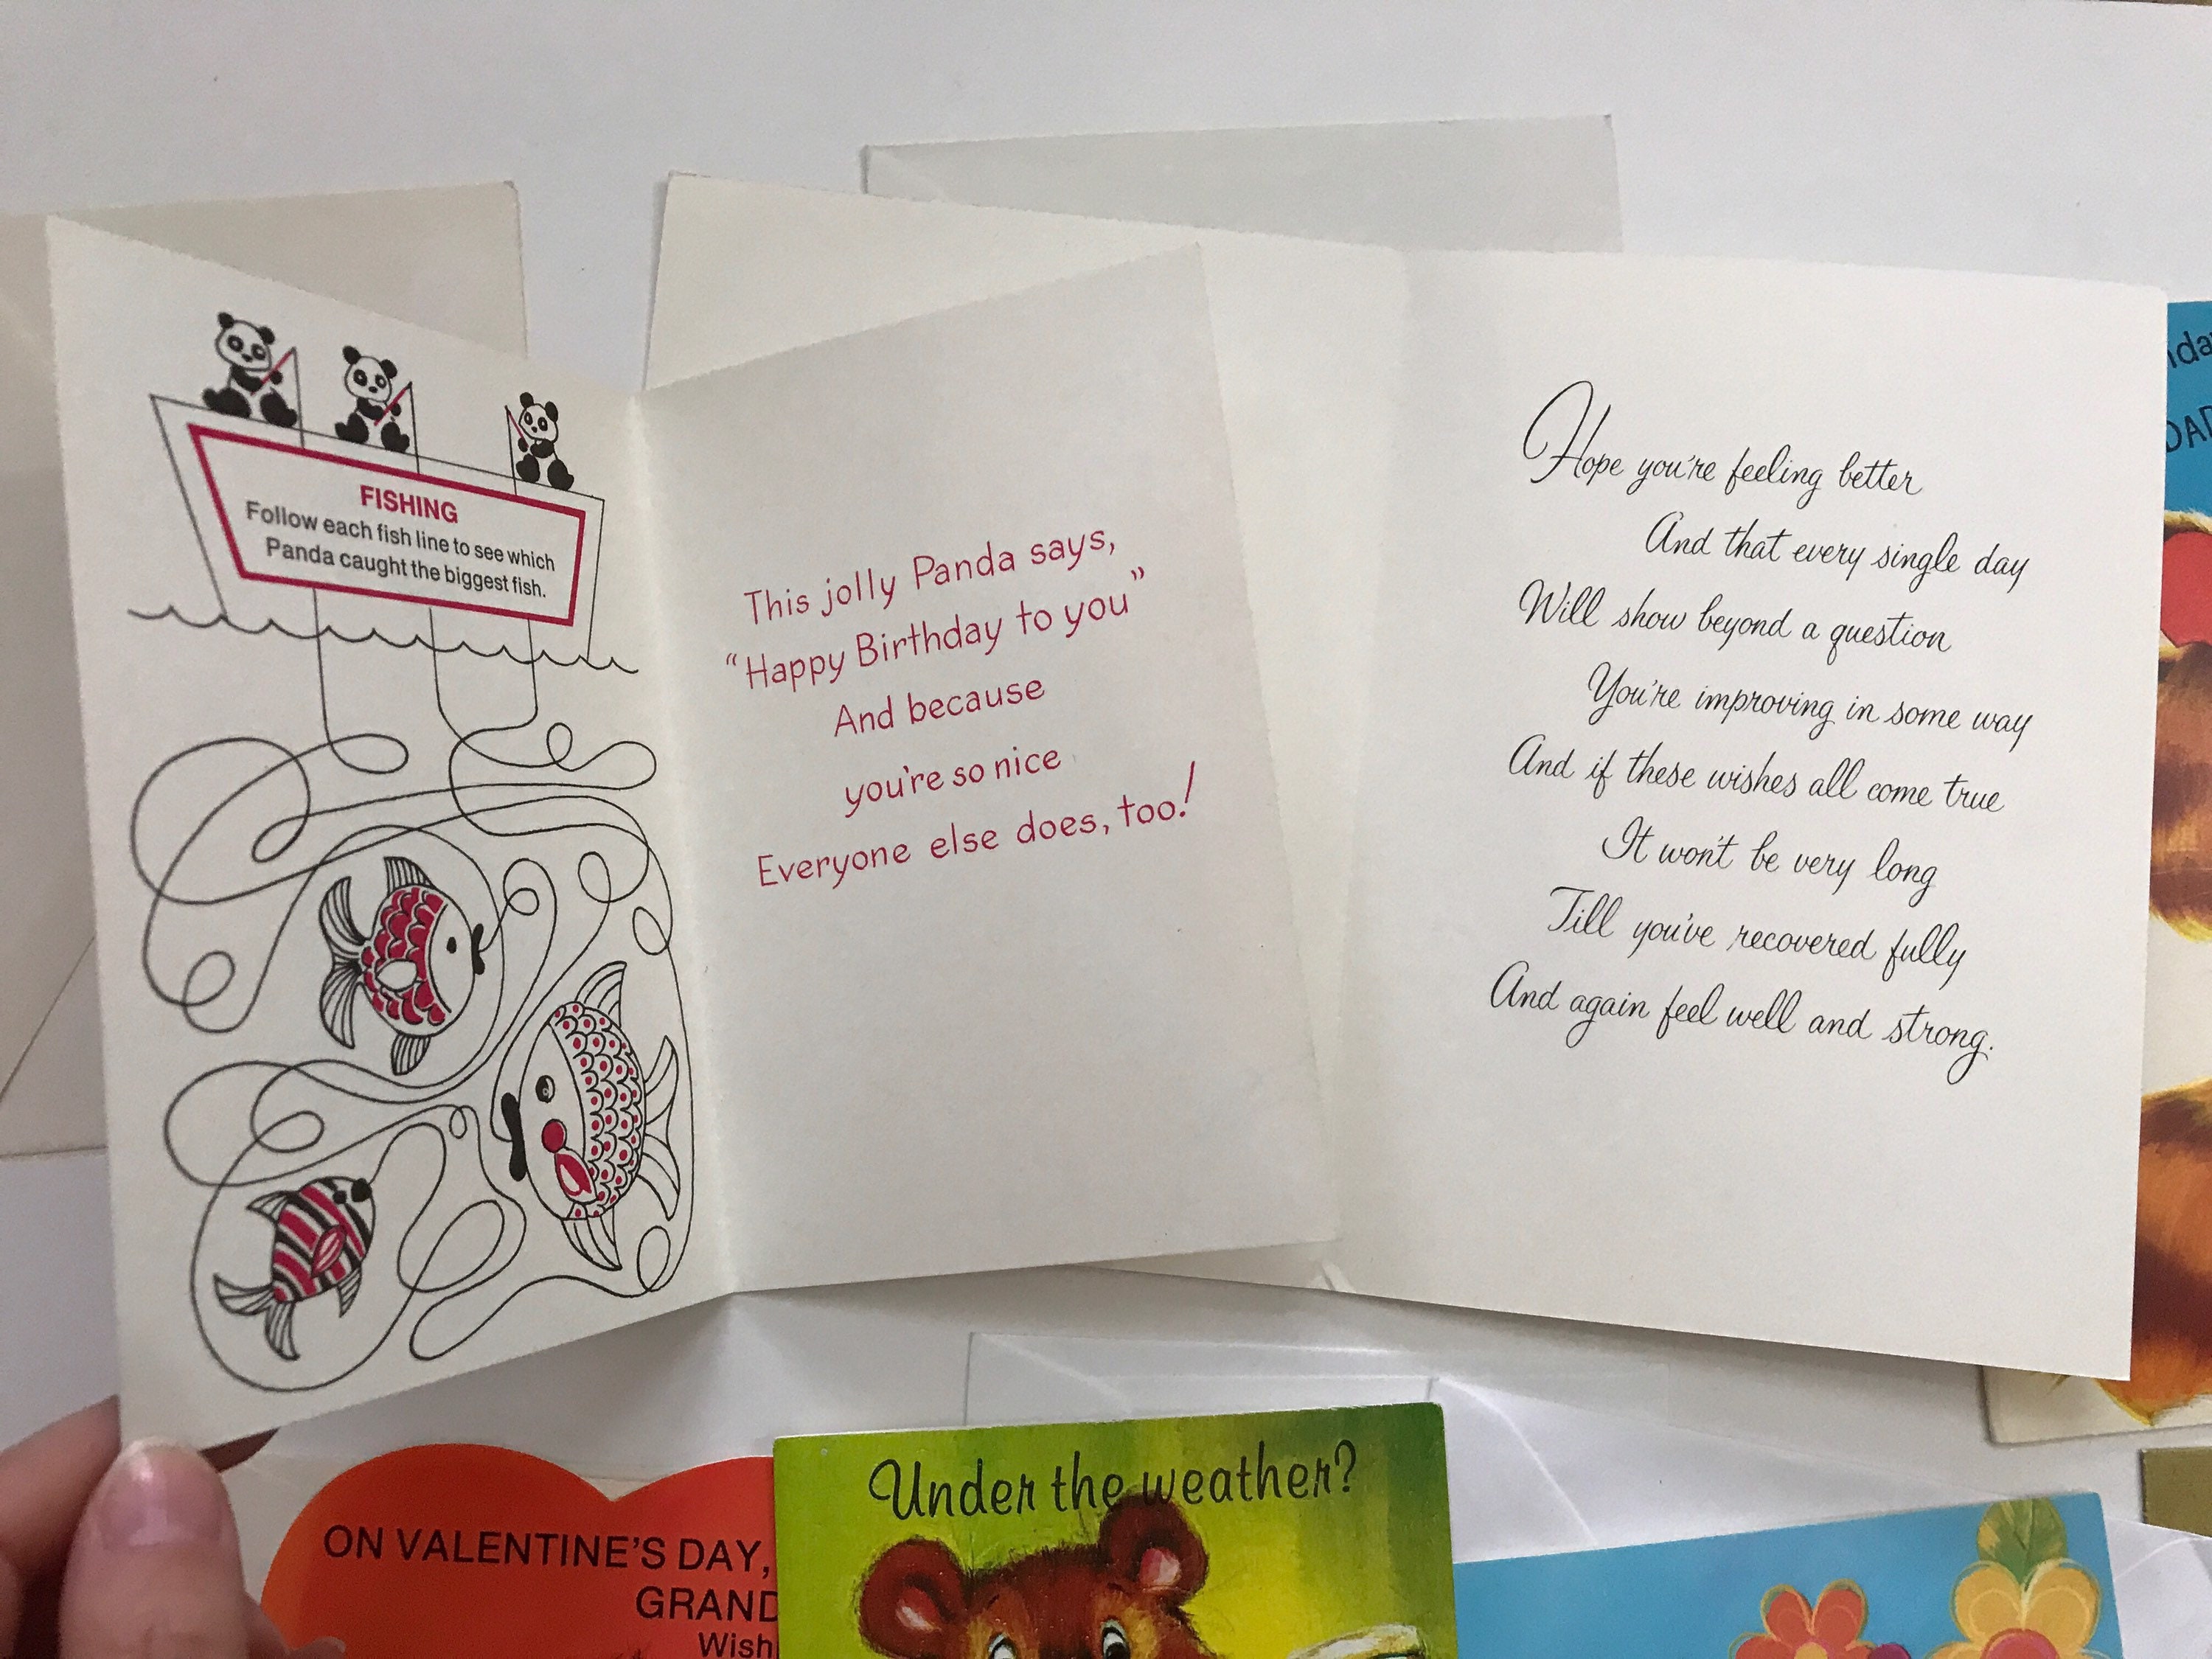 FISHING
Follow each fish line to see which
Panda caught the biggest fish.
This jolly Panda says,
“Happy Birthday to you”
And because
you're so nice
Everyone else does, too!
Hope you're feeling better
And that every single day
Will show beyond a question
You're improving in some way
And if these wishes all come true
It won't be very long
Till you've recovered fully
And again feel well and strong.
ON VALENTINE'S DAY,
GRAND
Wish
Under the weather?